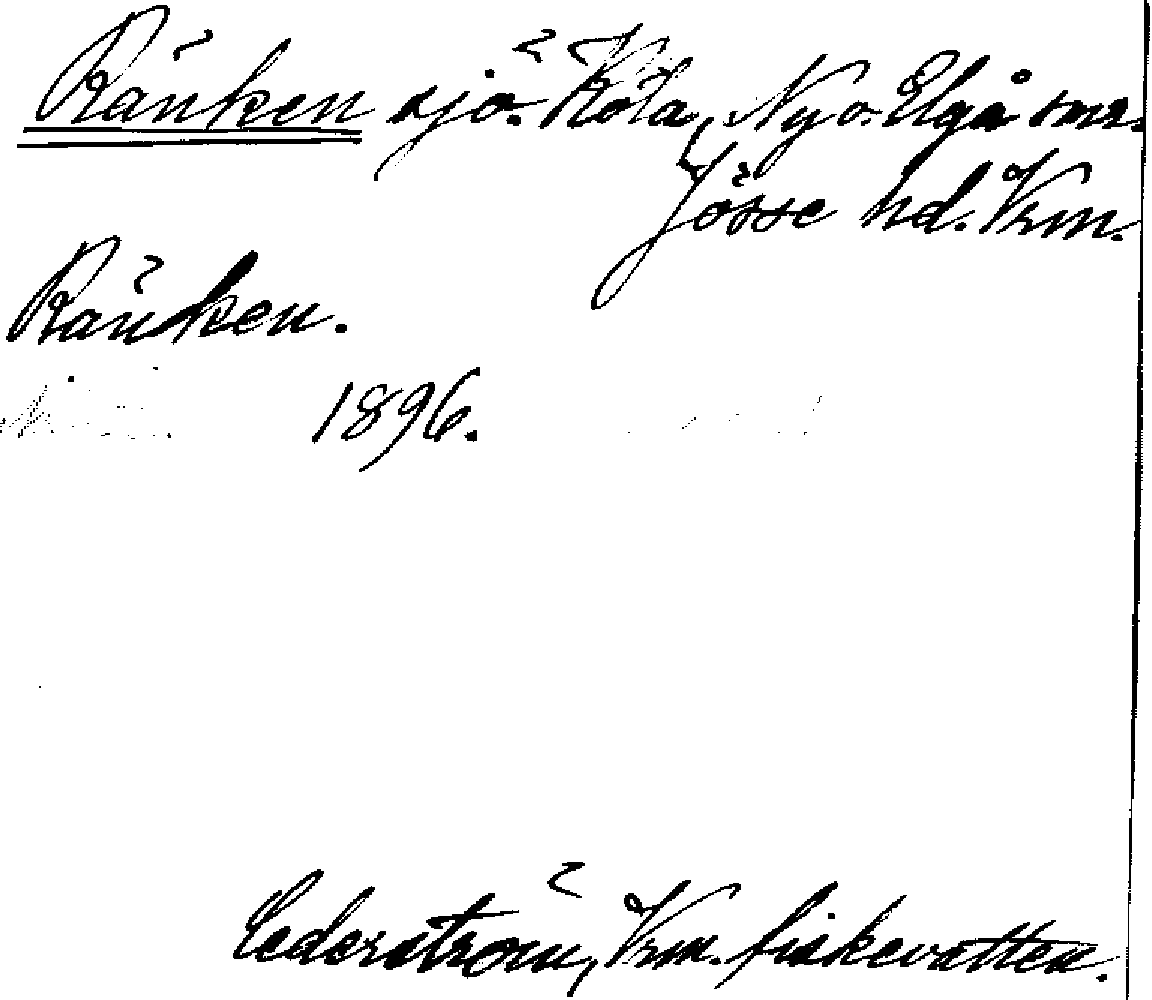 Ränken sjö. Köla, Ny o. Elgå snr.
Jösse hd. Vrm.
Ränken.
1896.
Cederström, Vrm. fiskevatten.